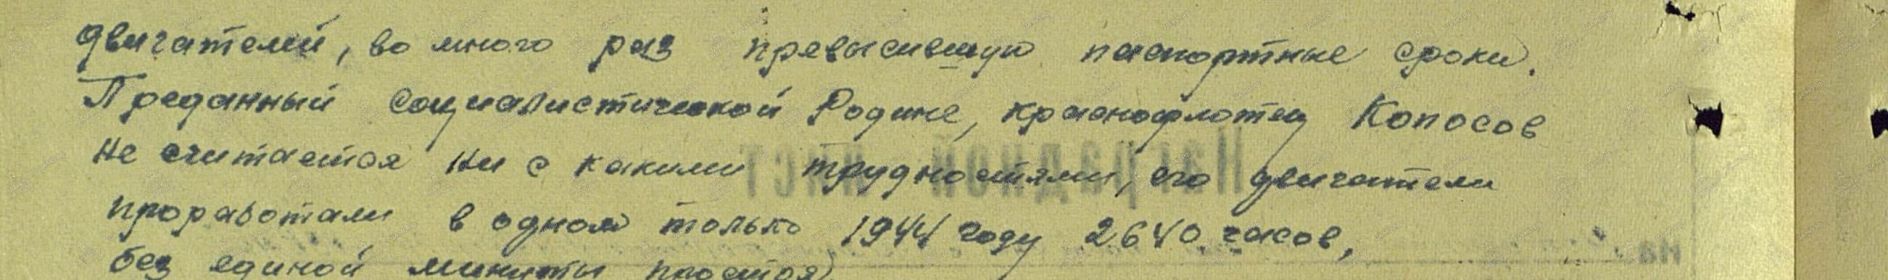 двигателей, во много раз превысившую паспортные сроки.
Преданный социалистической Родине, краснофлотец Копосов
не считается ни с какими трудностями, его двигатели
проработали в одном только 1944 году 2640 часов,
без единой минуты простоя